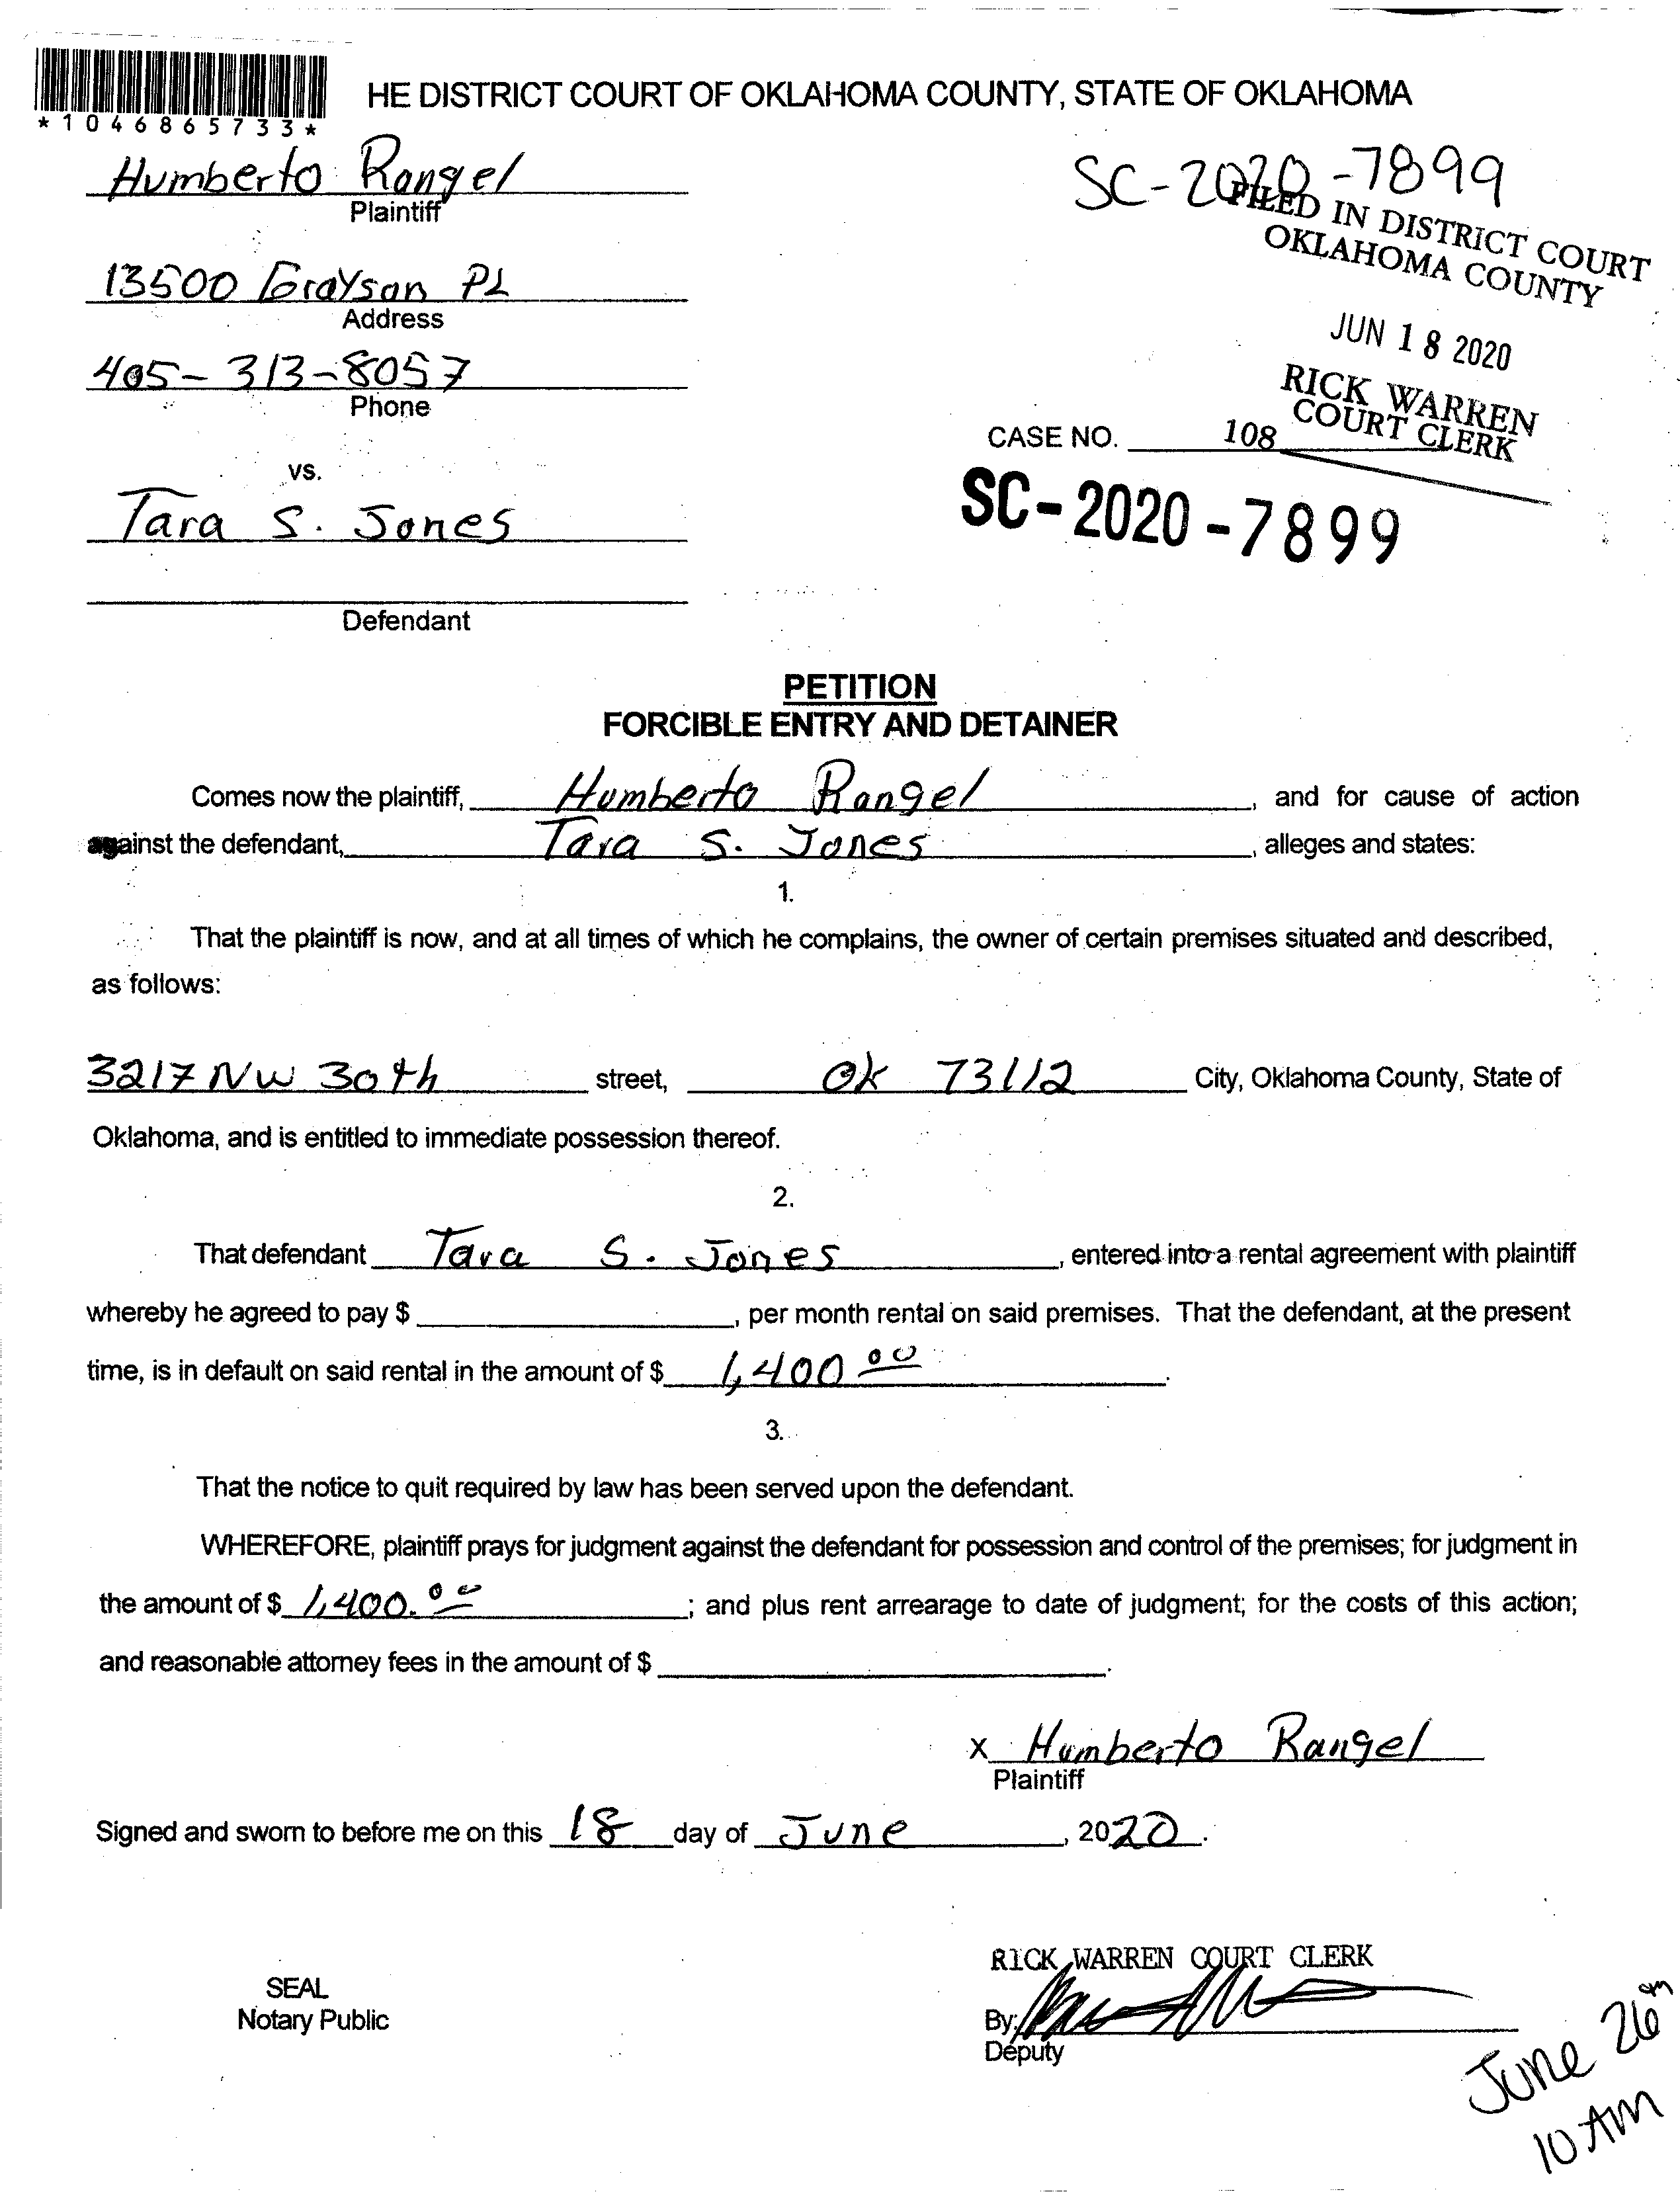 HE DISTRICT COURT OF OKLAHOMA COUNTY, STATE OF OKLAHOMA
*1046865733*
Humberto Rangel
Plaintiff
SC-2020-7899
FILED IN DISTRICT COURT
OKLAHOMA COUNTY
13500 Grayson PL
Address
JUN 18 2020
405-313-8057
Phone
RICK WARREN
COURT CLERK
CASE NO. 108
vs.
SC-2020-7899
Tara S. Jones
Defendant
PETITION
FORCIBLE ENTRY AND DETAINER
Comes now the plaintiff, Humberto Rangel, and for cause of action
against the defendant, Tara S. Jones, alleges and states:
1.
That the plaintiff is now, and at all times of which he complains, the owner of certain premises situated and described,
as follows:
3217 NW 30th street, Ok 73112 City, Oklahoma County, State of
Oklahoma, and is entitled to immediate possession thereof.
2.
That defendant Tara S. Jones, entered into a rental agreement with plaintiff
whereby he agreed to pay $, per month rental on said premises. That the defendant, at the present
time, is in default on said rental in the amount of $ 1,400 00.
3.
That the notice to quit required by law has been served upon the defendant.
WHEREFORE, plaintiff prays for judgment against the defendant for possession and control of the premises; for judgment in
the amount of $ 1,400.00; and plus rent arrearage to date of judgment; for the costs of this action;
and reasonable attorney fees in the amount of $.
x Humberto Rangel
Plaintiff
Signed and sworn to before me on this 18 day of June, 2020.
RICK WARREN COURT CLERK
SEAL
Notary Public
By:
Deputy
June 26th
10 AM